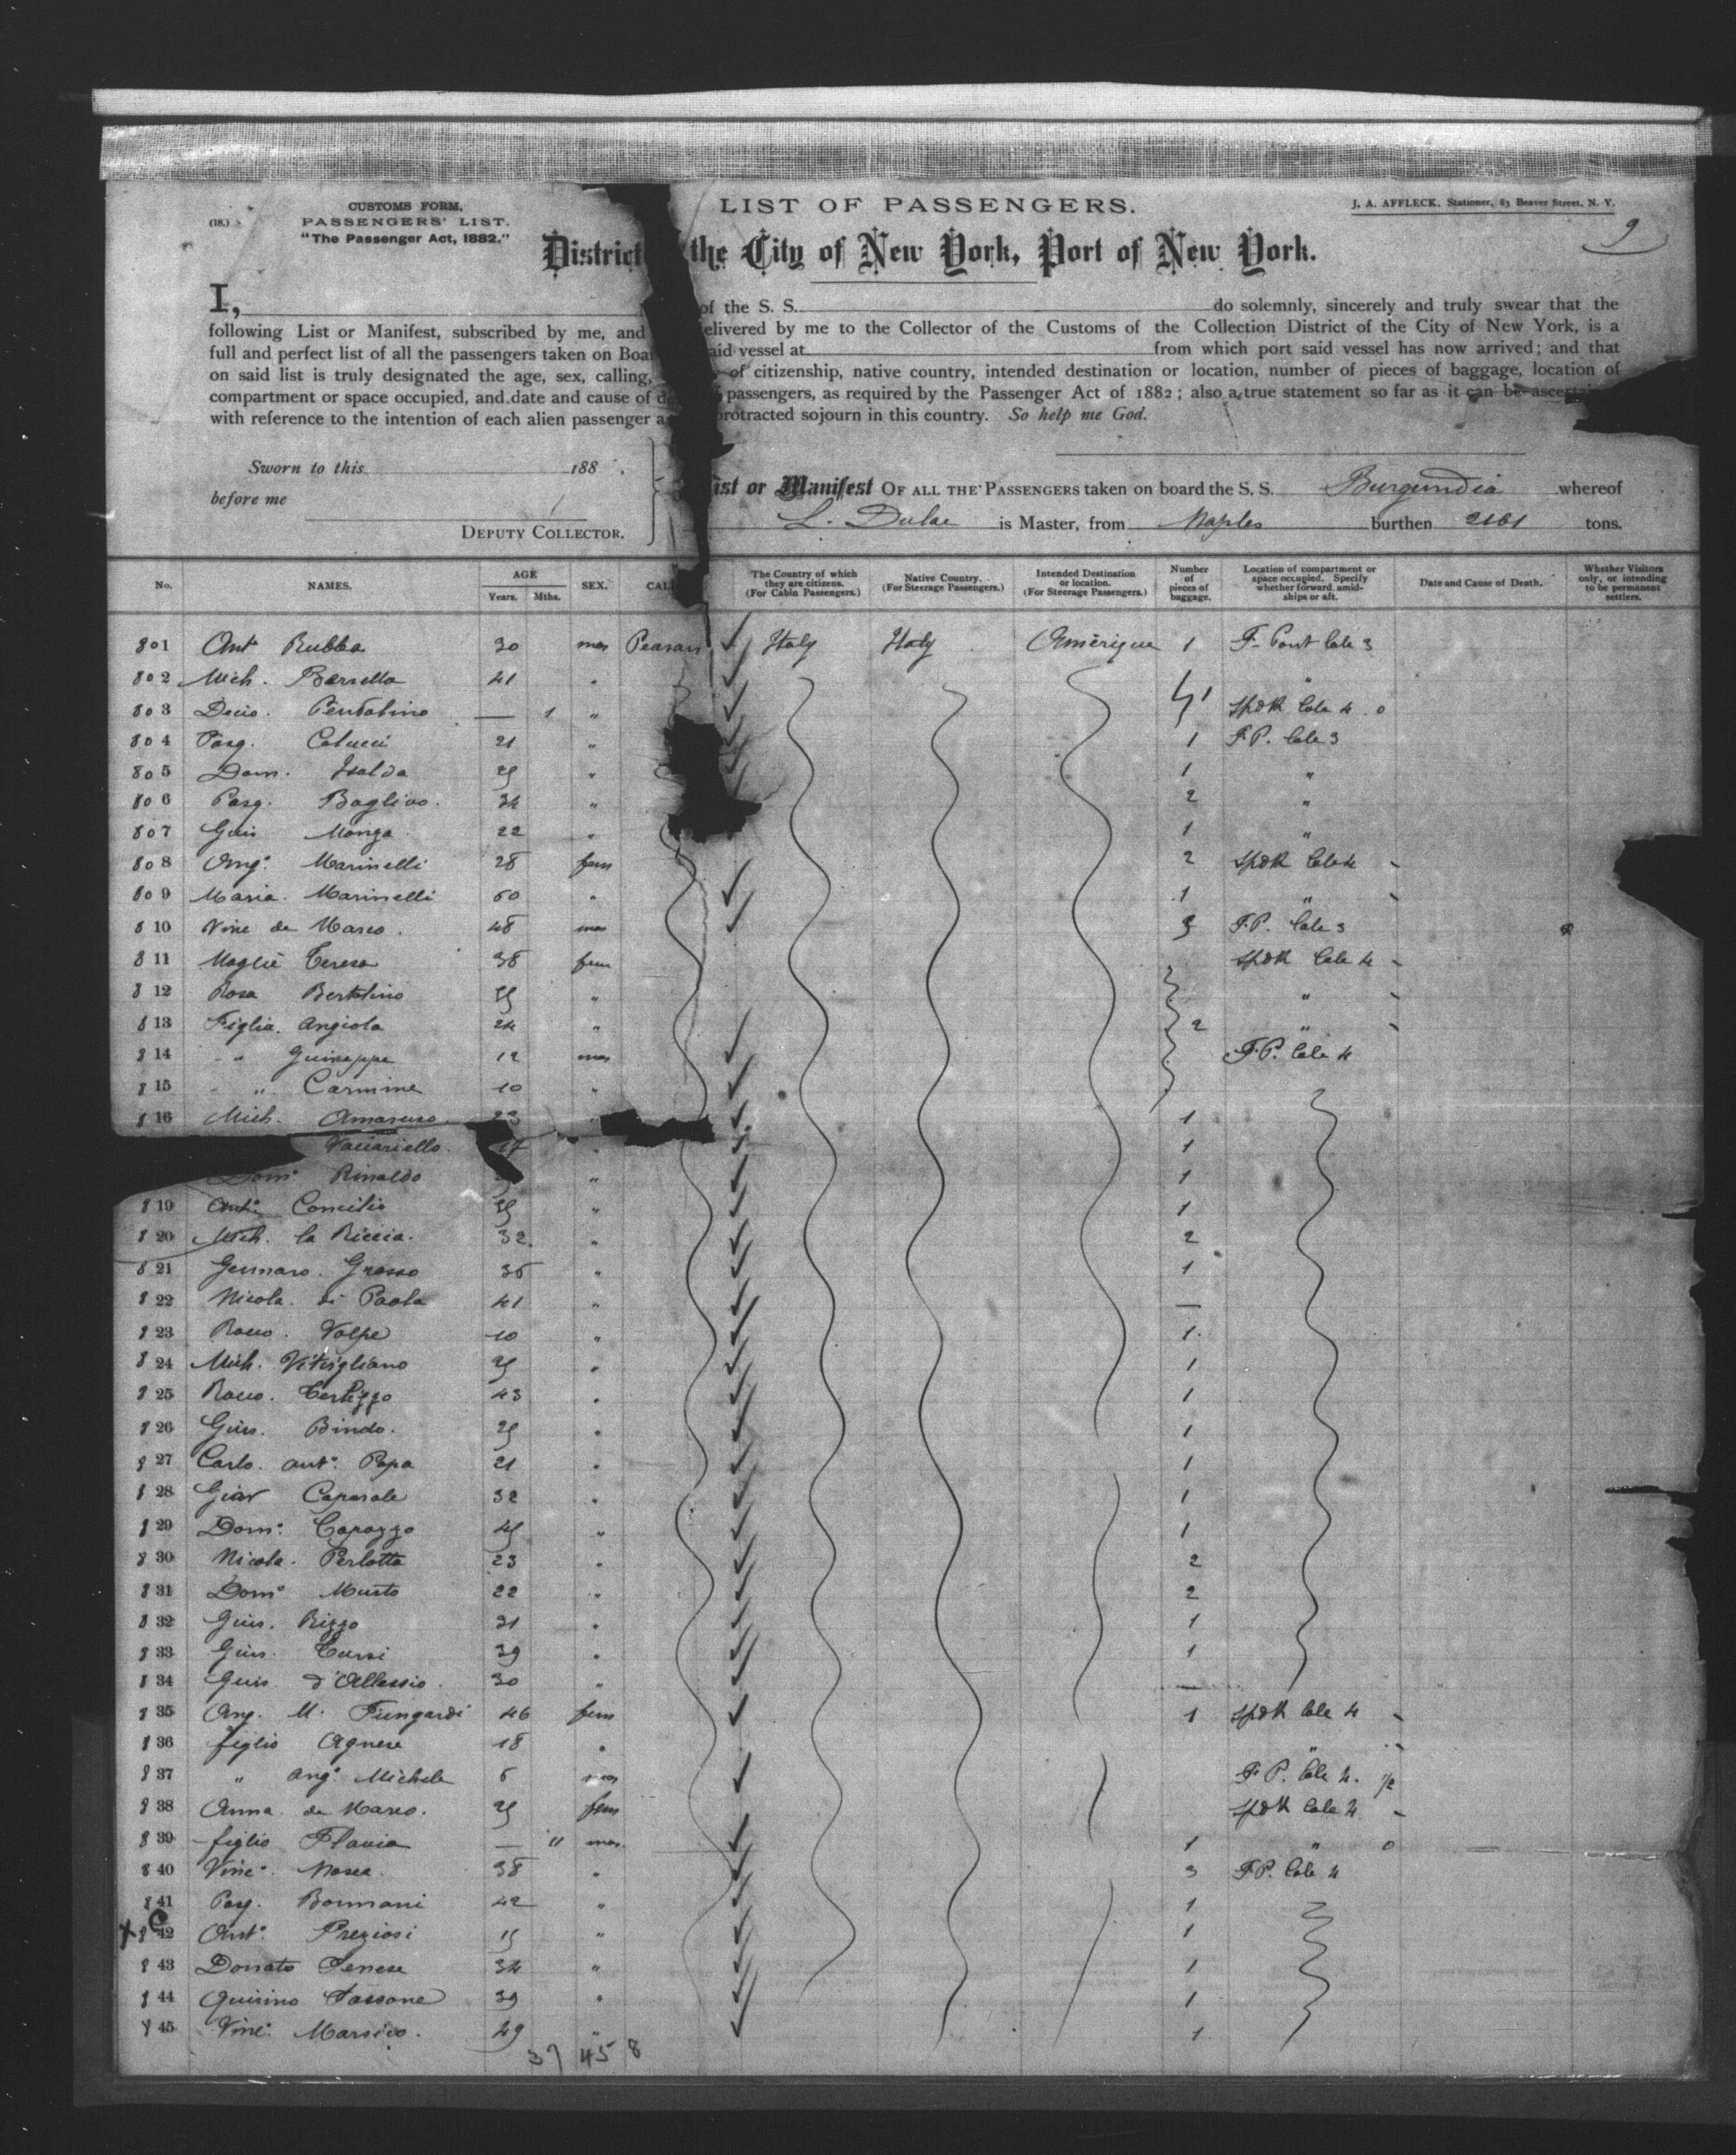 CUSTOMS FORM,
(18.) PASSENGERS' LIST.
"The Passenger Act, 1882."
LIST OF PASSENGERS.
J. A. AFFLECK, Stationer, 83 Beaver Street, N. Y.
9
District the City of New York, Port of New York.
I, of the S. S. do solemnly, sincerely and truly swear that the
following List or Manifest, subscribed by me, and elivered by me to the Collector of the Customs of the Collection District of the City of New York, is a
full and perfect list of all the passengers taken on Boa aid vessel at from which port said vessel has now arrived; and that
on said list is truly designated the age, sex, calling, of citizenship, native country, intended destination or location, number of pieces of baggage, location of
compartment or space occupied, and date and cause of de passengers, as required by the Passenger Act of 1882; also a true statement so far as it can be ascertai
with reference to the intention of each alien passenger a protracted sojourn in this country. So help me God.
Sworn to this 188 .
before me
DEPUTY COLLECTOR.
ist or Manifest OF ALL THE PASSENGERS taken on board the S. S. Burgundia whereof
L. Dulac is Master, from Naples burthen 2161 tons.
No. NAMES. AGE Years. Mths. SEX. CAL The Country of which they are citizens. (For Cabin Passengers.) Native Country. (For Steerage Passengers.) Intended Destination or location. (For Steerage Passengers.) Number of pieces of baggage. Location of compartment or space occupied. Specify whether forward, amidships or aft. Date and Cause of Death. Whether Visitors only, or intending to be permanent settlers.
801 Ant° Rubba 30 mas Peasan Italy Italy Amérique 1 F. Pont Cale 3
802 Mich. Barrella 41 " "
803 Decio. 1 " 1 Spdk Cale 4 0
804 Pasq. Colucci 21 " 1 F.P. Cale 3
805 Dom. Isalda 29 " 1 "
806 Pasq. Baglivo. 34 " 2 "
807 Gius Monga 22 " 1 "
808 Ang° Marinelli 28 fem 2 Spdk Cale 4
809 Maria. Marinelli 60 " 1 "
810 Vinc de Marco. 48 mas 3 F.P. Cale 3
811 Maglie Teresa 38 fem Spdk Cale 4
812 Rosa Bertolino " "
813 Figlia. Angiola 24 " 2 "
814 " Guiseppe 12 mas F.P. Cale 4
815 " Carmine 10 "
816 Mich. Amaruso 23 " 1
Vaccariello. " 1
Dom° Rinaldo " 1
819 Ant° Concilio 39 " 1
820 Mich. la Riccia. 32 " 2
821 Gennaro. Grasso 36 " 1
822 Nicola. di Paola 41 " —
823 Rocco. Volpe 10 " 1
824 Mich. Vitigliano 29 " 1
825 Rocco. 43 " 1
826 Gius. Bindo. 29 " 1
827 Carlo. Ant° Papa 21 " 1
828 Caporale 32 " 1
829 Dom° Capozzo 49 " 1
830 Nicola. Perlotta 23 " 2
831 Dom° Musto 22 " 2
832 Gius. Rizzo 31 " 1
833 Gius. Cursi 39 " 1
834 Guis d'Allessio. 30 " —
835 Ang. M. Fungardi 46 fem 1 Spdk Cale 4
836 figlio Agnese 18 " "
837 " Ang° Michele 6 mas F.P. Cale 4. 1/2
838 Anna de Marco. 29 fem Spdk Cale 4
839 figlio Flavia — 11 mas. 1 " 0
840 Vinc° Mosca. 38 " 3 F.P. Cale 4
841 Pasq. Bonmani 42 " 1
X C 842 Ant° Preziosi 19 " 1
843 Donato Tenese 34 " 1
844 Quirino Tassone 39 " 1
845 Vinc° Marsico. 49 " 1
37 45 8